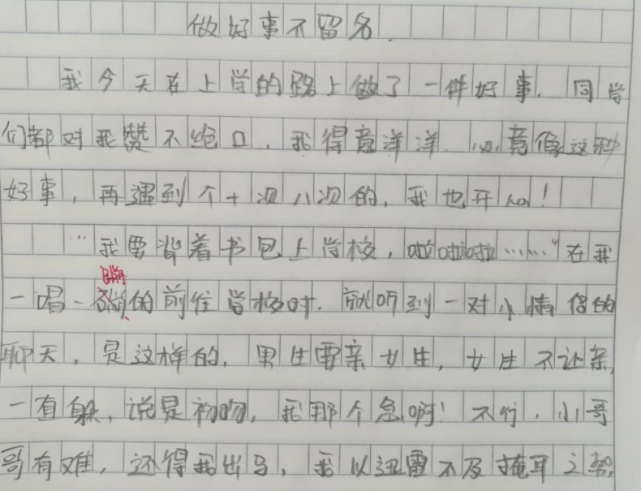 做好事不留名
我今天在上学的路上做了一件好事，同学
们都对我赞不绝口，我得意洋洋，心竟像这种
好事，再遇到个十次八次的，我也开心！
"我要背着书包上学校，啦啦啦……"在我
一唱一蹦的前往学校时，就听到一对小情侣的
聊天，是这样的，男生要亲女生，女生不让亲，
一直躲，说是初吻，我那个急啊！不行，小哥
哥有难，还得我出马，我以迅雷不及掩耳之势